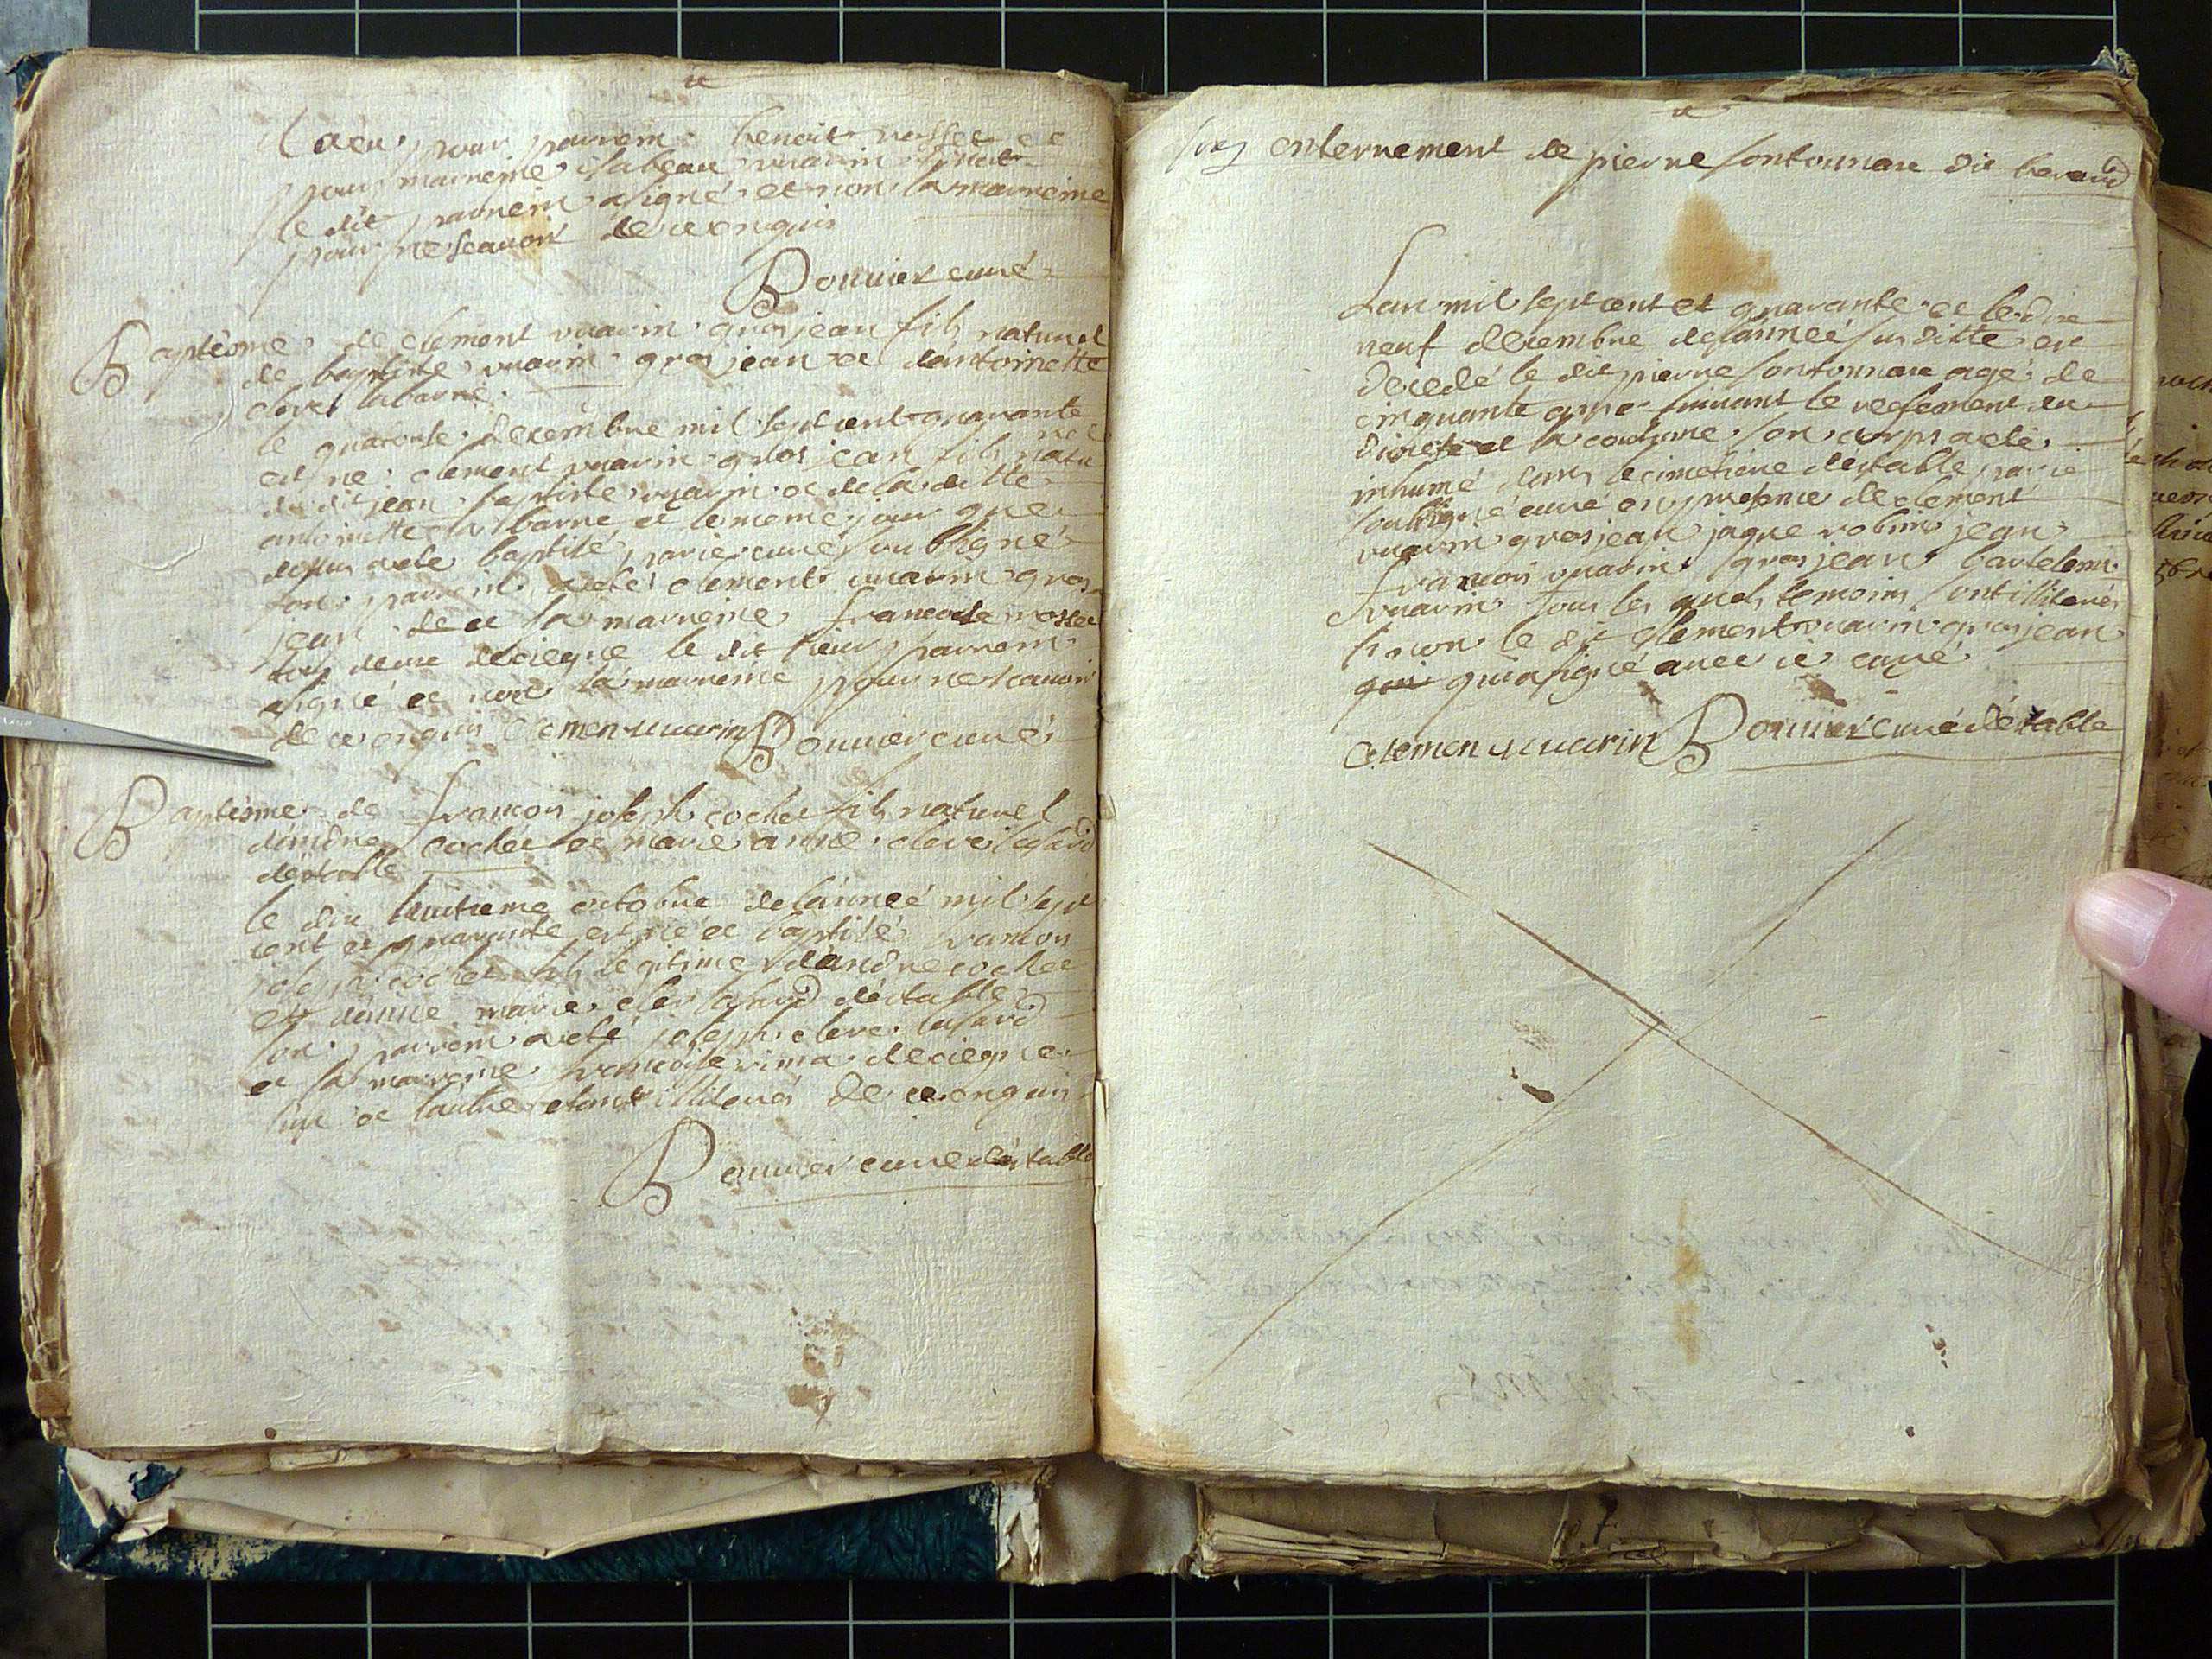 il a eu pour parrein benoit rosset et
pour marreine isabeau vuarin
le dit parrein a signé et non la marreine
pour ne scavoir de ce enquis
Bouvier curé
Baptesme de clement vuarin grosjean fils naturel
de baptiste vuarin grosjean et dantoinette
clert labarne
le quatorse decembre mil sept cent quarante
est né clement vuarin grosjean fils natu rel
du dit jean baptiste vuarin et de la ditte
antoinette labarne et le meme jour que
dessus a eté baptisé par ie curé soubsigné
son parrein a eté clement vuarin gros
jean et la marreine francoise rosset
tous deux le dit sieur parrein
a signé et non la marreine pour ne scavoir
de ce enquis clemen vuarin Bouvier curé
Baptesme de francois joseph cochet fils naturel
dandre cochet et marie anne clert lasard
détable
le dix huitieme octobre de lanneé mil sept
cent et quarante est né et baptisé francois
joseph cochet fils legitime dandre cochet
et danne marie clert lasard détable
son parrein a eté joseph clert lasard
et la marreine francoise rima
lun et lautre etant illiterés de ce enquis
Bouvier curé détable
enterrement de pierre sontonnax dit beraud
Lan mil sept cent et quarante et le dix
neuf decembre de lanneé susditte est
decedé le dit pierre sontonnax agé de
cinquante ans suivant le reglement du
diocese et la coutume son corps a eté
inhumé dans le cimetiere detable par ie
soubsigné curé en presence de clement
vuarin grosjean jaque robin jean
francois vuarin grosjean bartelemi
vuarin tous les quels temoins sont illiterés
sinon le dit clement vuarin grosjean
qui a signé avec ie curé
clemen vuarin Bouvier curé détable